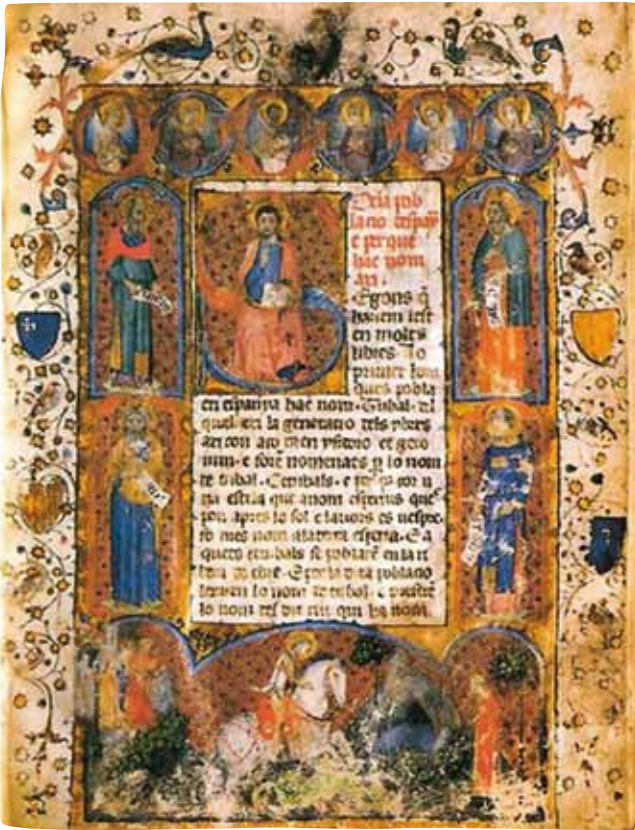 De la pob
lacio despay
e per que
hac nom
axi.
Egons q̄
hauem lest
en moltes
libres lo
primer hom
ques pobla
en espanya hac nom. Tubal. del
qual exi la generacio dels ybers
axi con aço dien ysidoro et gero
nim. e forē nomenats p lo nom
de tubal. Cetubals. e
na estela que anom esperus que
pon apres lo sol e lauors es uespre.
fo mes nom ala terra espera. E a
quets cetubals se poblarē en la ri
bera de ebre. E per la dita poblacio
lo nom de tubal. e
lo nom del dit riu qui ha nom.